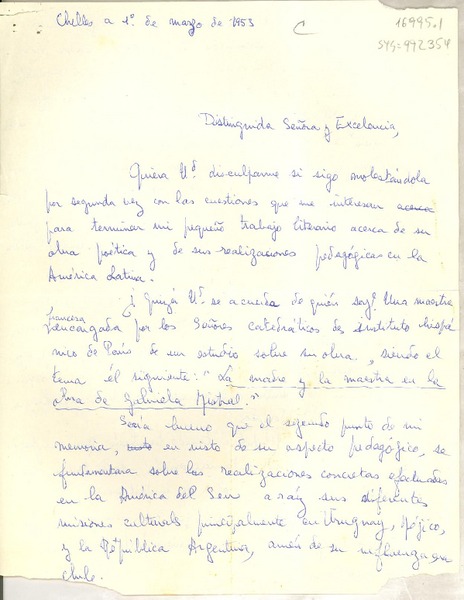 Chelles a 1º. de marzo de 1953
C
16995.1
sys=992354
Distinguida Señora y Excelencia,
Quiera Ud. disculparme si sigo molestándola
por segunda vez con las cuestiones que me interesan acerca
para terminar mi pequeño trabajo literario acerca de su
obra poética y de sus realizaciones pedagógicas en la
América Latina.
¿ Quizá Ud. se acuerda de quién soy? Una maestra
francesa
encargada por los Señores catedráticos des Instituto hispá
nico de París de un estudio sobre su obra, siendo el
tema él siguiente: "La madre y la maestra en la
obra de Gabriela Mistral."
Sería bueno que el segundo punto de mi
memoria, visto en visto de su aspecto pedagógico, se
fundamentara sobre las realizaciones concretas efectuadas
en la América del Sur a raíz sus diferentes
misiones culturals principalmente en Uruguay, Méjico,
y la República Argentina, amén de su influenza en
chile.